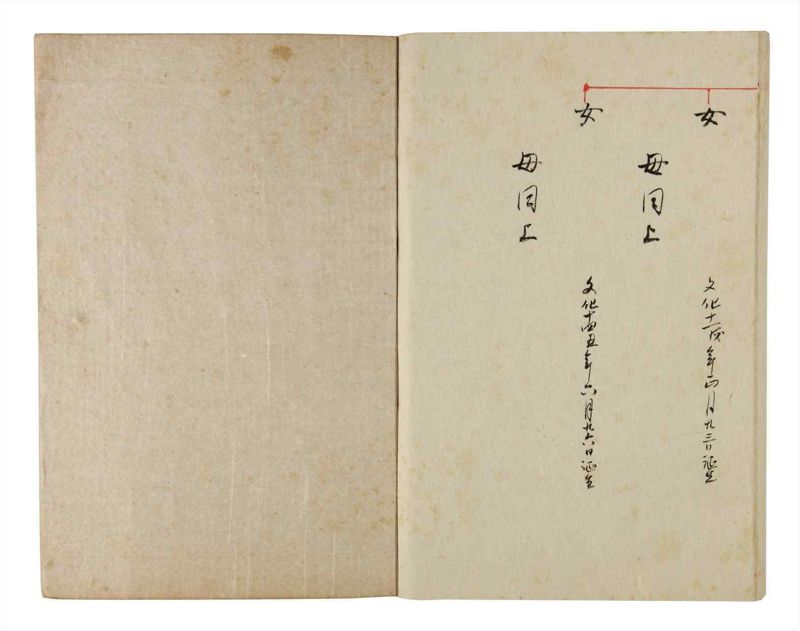 女
文化十一戌年正月廿三日誕生
母同上
女
文化十四丑年六月廿六日誕生
母同上